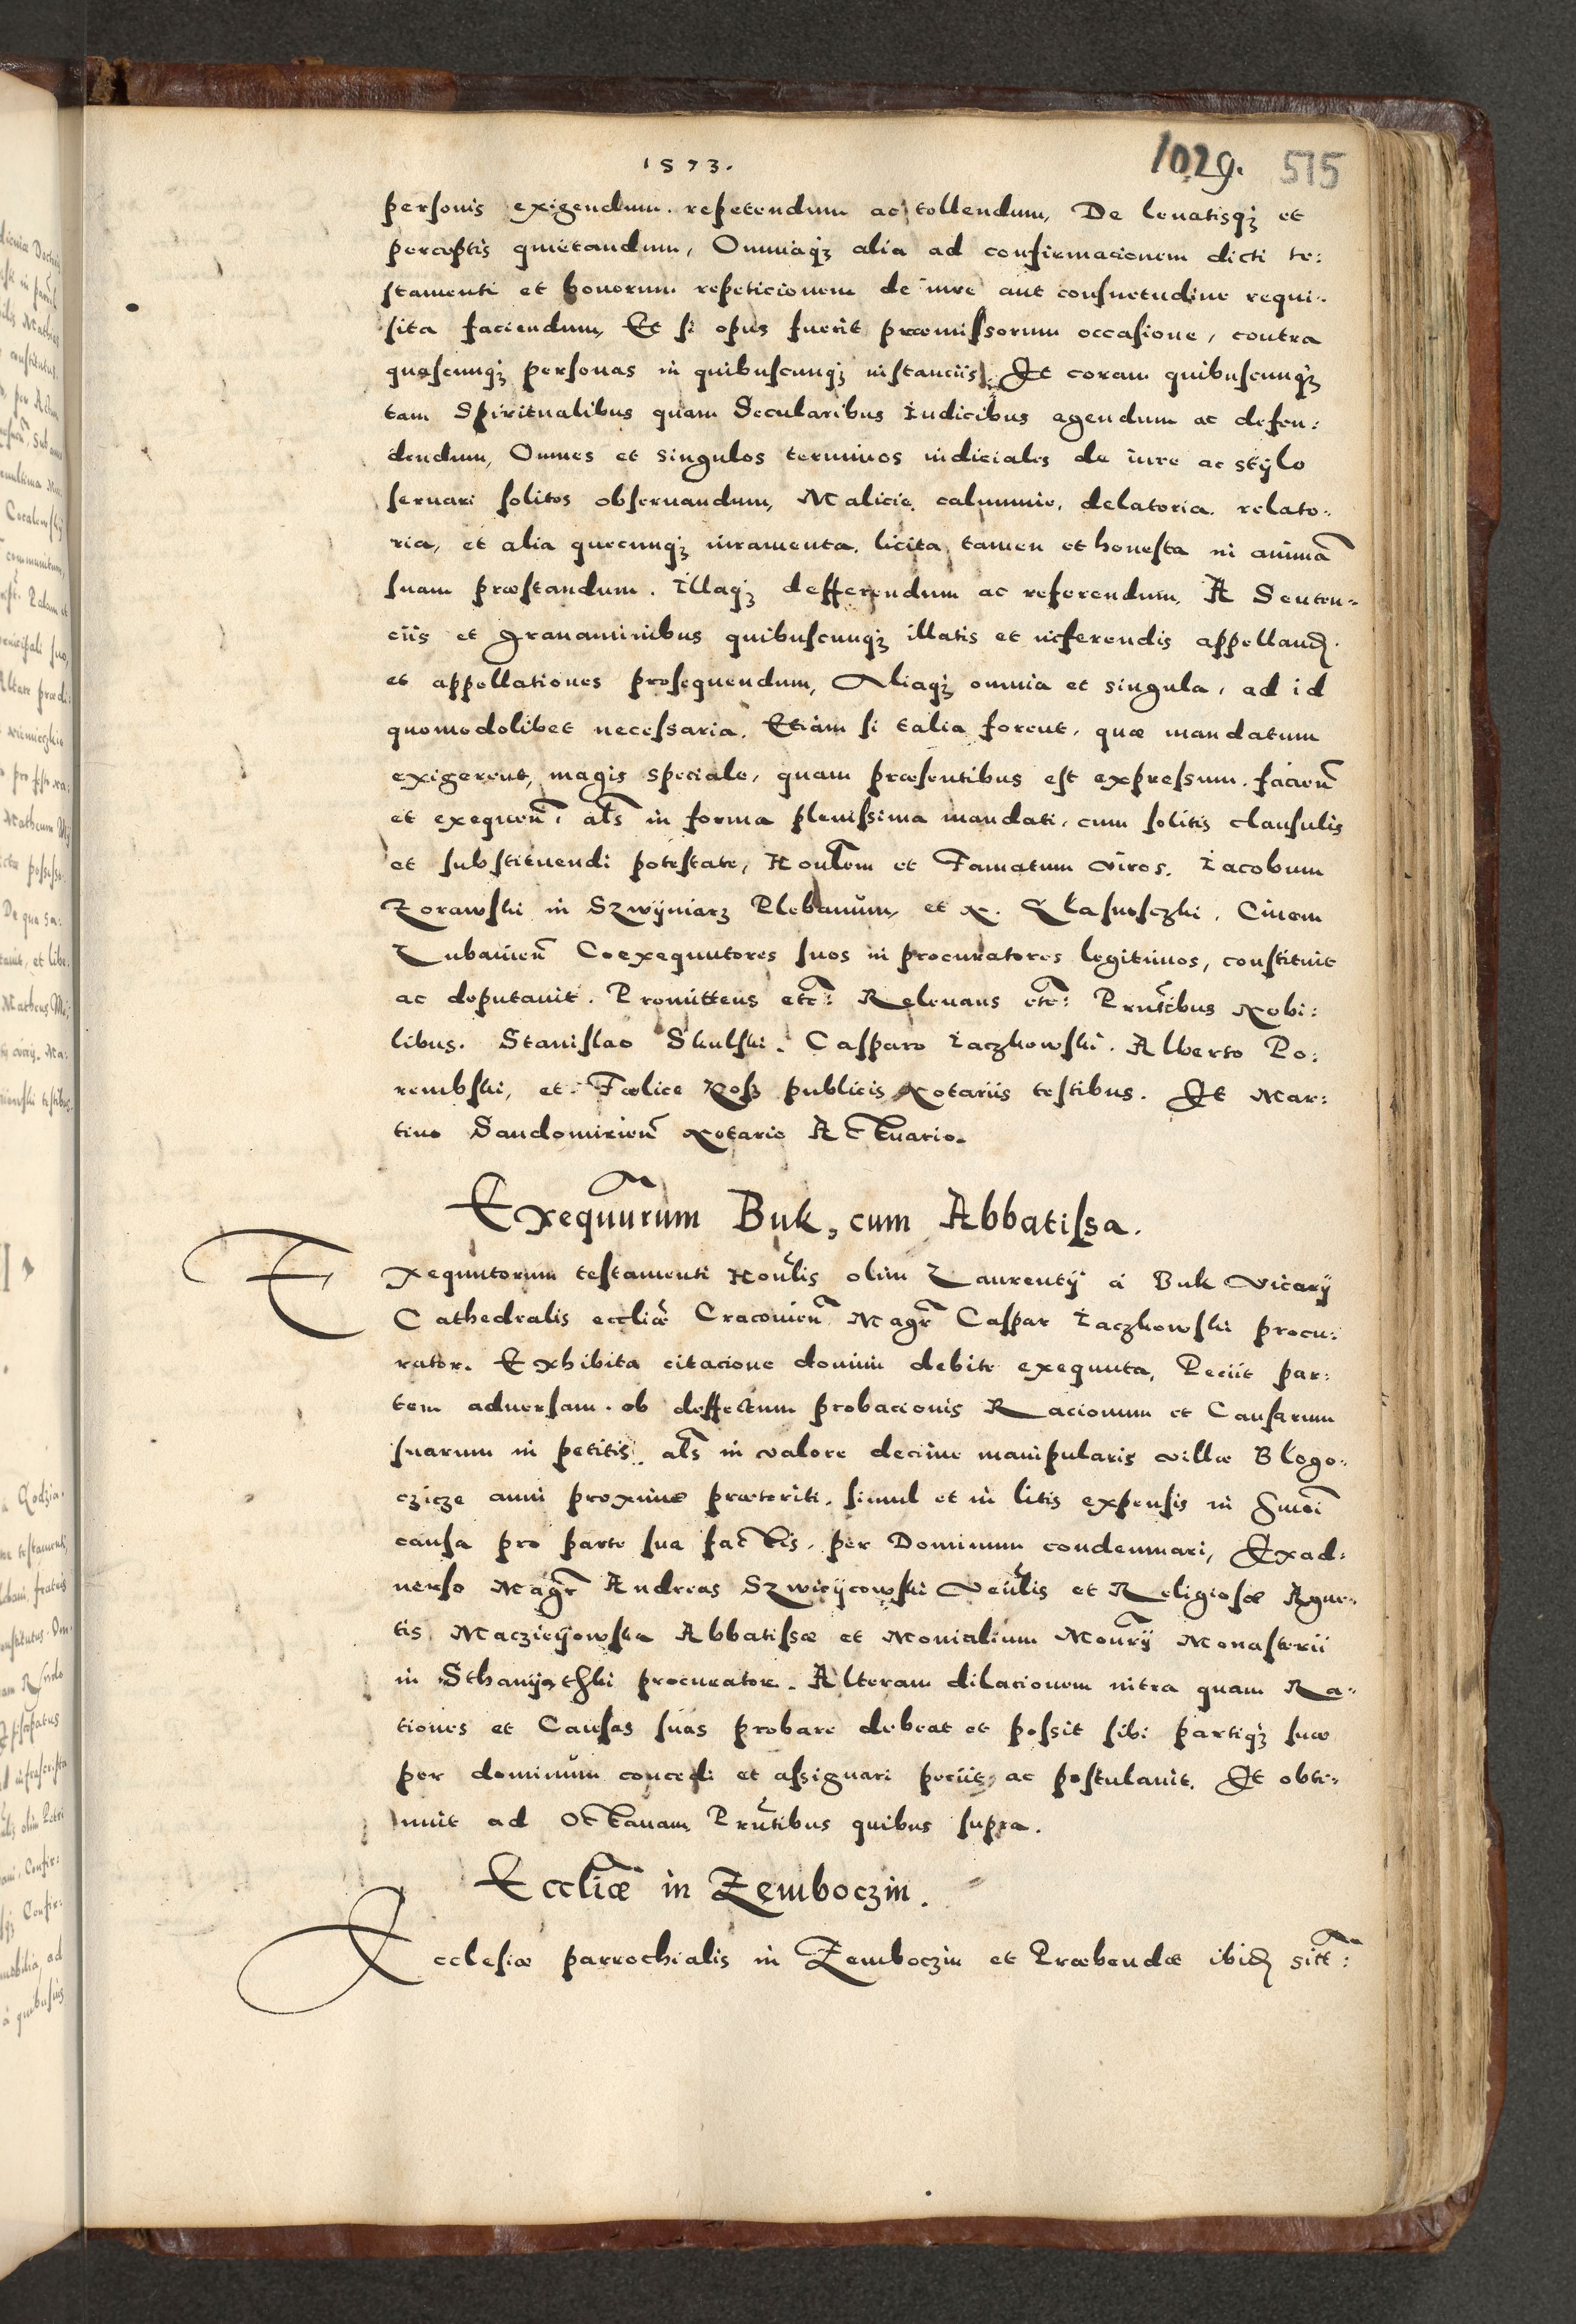 1573.
1029. 515
personis exigendum. repetendum ac tollendum, De leuatisqȝ et
perceptis quietandum, Omniaqȝ alia ad confirmacionem dicti te:
stamenti et bonorum repeticionem de iure aut consuetudine requi:
sita faciendum, Et si opus fuerit præmissorum occasione, contra
quascunqȝ personas in quibuscunqȝ instanciis, Et coram quibuscunqȝ
tam Spiritualibus quam Secularibus Iudicibus agendum ac defen:
dendum, Omnes et singulos terminos iudiciales de iure ac stylo
seruari solitos obseruandum, Malicie, calumnie, delatoria, relato:
ria, et alia quecunqȝ iuramenta, licita tamen et honesta in animā
suam præstandum. Illaqȝ defferendum ac referendum, A Senten:
ciis et Grauaminibus quibuscunqȝ illatis et inferendis appelland̄.
et appellationes prosequendum, Aliaqȝ omnia et singula, ad id
quomodolibet necessaria. Etiam si talia forent, quæ mandatum
exigerent, magis speciale, quam præsentibus est expressum. facien̄
et exequen̄, al̄s in forma plenissima mandati, cum solitis clausulis
et substituendi potestate, Hon̄lem et Famatum viros, Iacobum
Zorawski in Szwyniarz Plebanum, et N. Kłasnosczki, Ciuem
Lubanien̄ Coexequutores suos in procuratores legitimos, constituit
ac deputauit. Promittens etc̄: Releuans etc̄: Prn̄tibus Nobi:
libus. Stanislao Skulski. Casparo Iaczkowski. Alberto Po:
rembski, et Fœlice Ross publicis Notariis testibus. Et Mar:
tino Sandomirien̄ Notario Actuario.
Exequūrum Buk, cum Abbatissa.
Exequutorum testamenti Hon̄lis olim Laurentij á Buk Vicarij
Cathedralis eccliǣ Cracouien̄ Magr̄ Caspar Iaczkowski procu:
rator. Exhibita citacione domini debite exequuta, Peciit par:
tem aduersam. ob deffectum probacionis Racionum et Causarum
suarum in petitis. al̄s in valore decime manipularis villæ Blogo:
czicze anni proxime præteriti, simul et in litis expensis in hm̄oi
causa pro parte sua factis, per Dominum condemnari, Exad:
uerso Magr̄ Andreas Szwieijcowski Ven̄lis et Religiosæ Agne:
tis Maczieijowska Abbatissæ et Monialium Mon̄rij Monasterii
in Sthanijąthki procurator. Alteram dilacionem intra quam Ra:
tiones et Causas suas probare debeat et possit sibi partiqȝ suæ
per dominum concedi et assignari peciit ac postulauit. Et obti:
nuit ad Octauam, Prn̄tibus quibus supra.
Eccliǣ in Zemboczin.
Ecclesiæ parrochialis in Zemboczin et Præbendæ ibid̄ sitt̄: